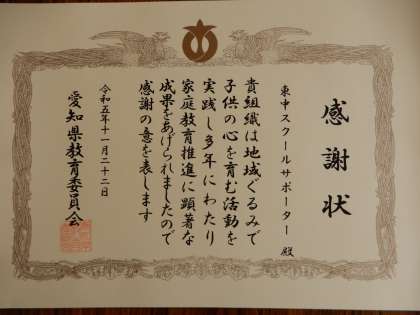 感謝状
東中スクールサポーター 殿
貴組織は地域ぐるみで
子供の心を育む活動を
実践し多年にわたり
家庭教育推進に顕著な
成果をあげられましたので
感謝の意を表します
令和五年十一月二十二日
愛知県教育委員会